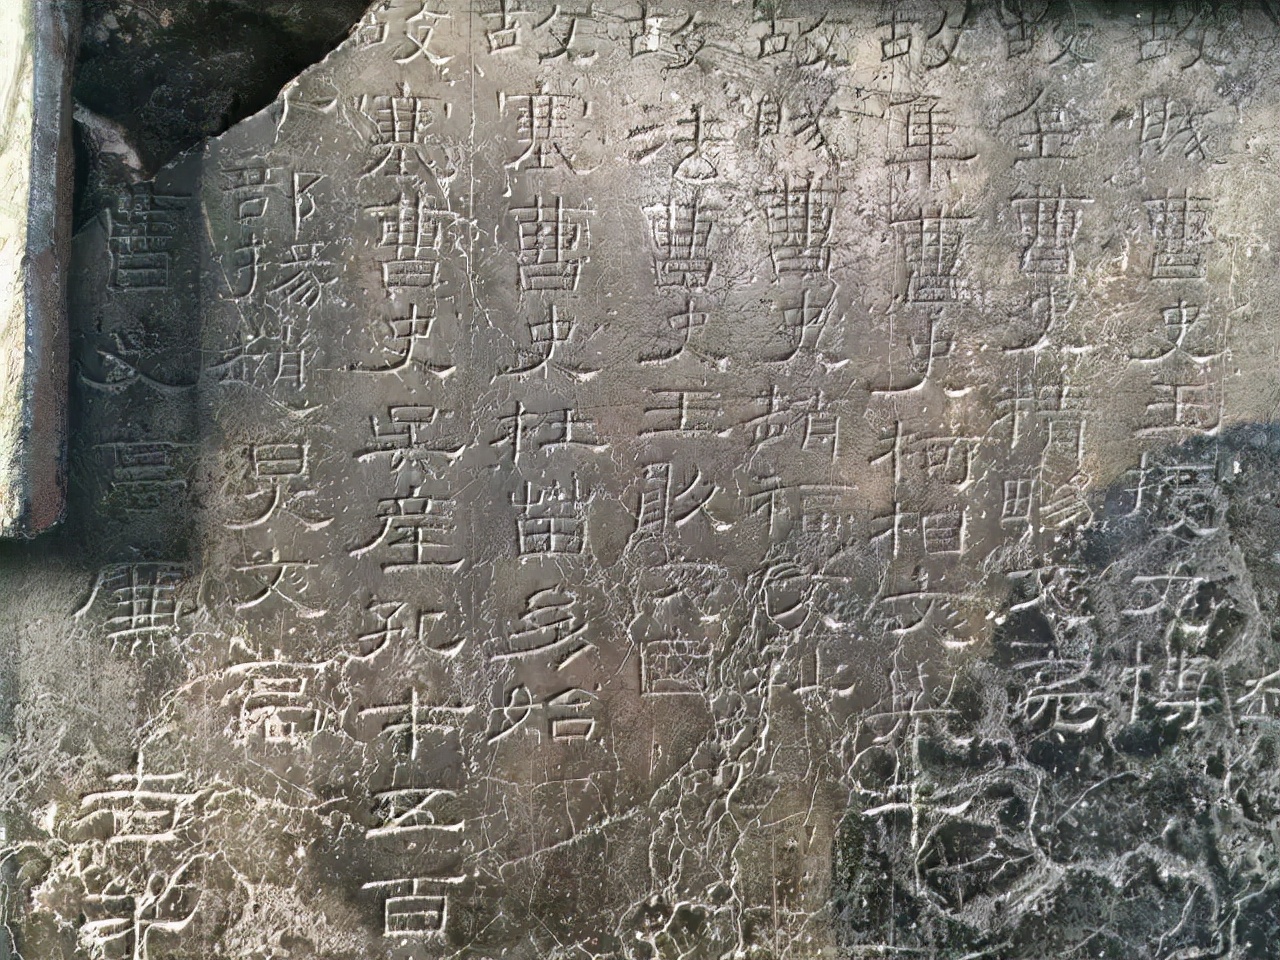 故賊曹史王授文博
故金曹史精暢文亮
故集曹史柯相文舉千
故賊曹史趙福文祉
故法曹史王敢文國
故塞曹史杜苗幼始
故塞曹史吳產孔才五百
部掾趙炅文高
曹史高廉吉千